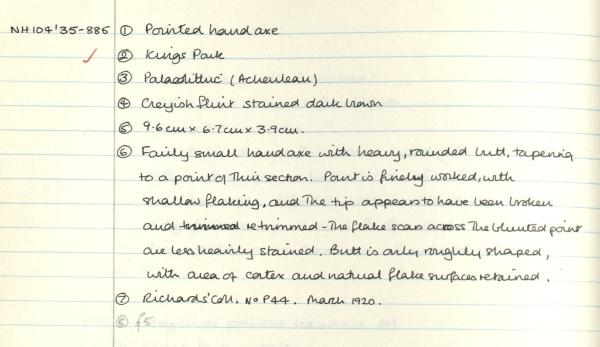 NH104'35-885 ① Pointed handaxe
② Kings Park
③ Palaeolithic (Acheulean)
④ Greyish flint stained dark brown
⑤ 9.6cm x 6.7cm x 3.9cm.
⑥ Fairly small handaxe with heavy, rounded butt, tapering
to a point of thin section. Point is finely worked, with
shallow flaking, and the tip appears to have been broken
and trimmed retrimmed - The flake scars across the blunted point
are less heavily stained. Butt is only roughly shaped,
with area of cortex and natural flake surfaces retained.
⑦ Richards' Coll. No P44. March 1920.
⑧ £5